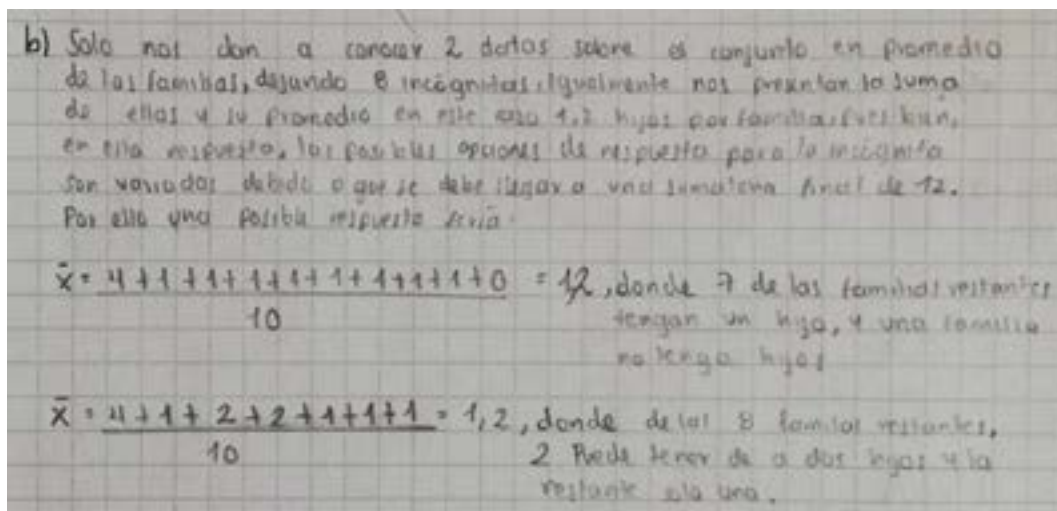 b) Solo nos dan a conocer 2 datos sobre el conjunto en promedio
de las familias, dejando 8 incógnitas. Igualmente nos presentan la suma
de ellas y su promedio en este caso 1,2 hijos por familia. Pues bien,
en esta respuesta, las posibles opciones de respuesta para la incógnita
son variadas debido a que se debe llegar a una sumatoria final de 12.
Por ello una posible respuesta sería
x̄ = 4+1+1+1+1+1+1+1+1+0 = 1,2, donde 7 de las familias restantes
10
tengan un hijo, y una familia
no tenga hijos
x̄ = 4+1+2+2+1+1+1 = 1,2, donde de las 8 familias restantes,
10
2 Puede tener de a dos hijos y la
restante solo una.